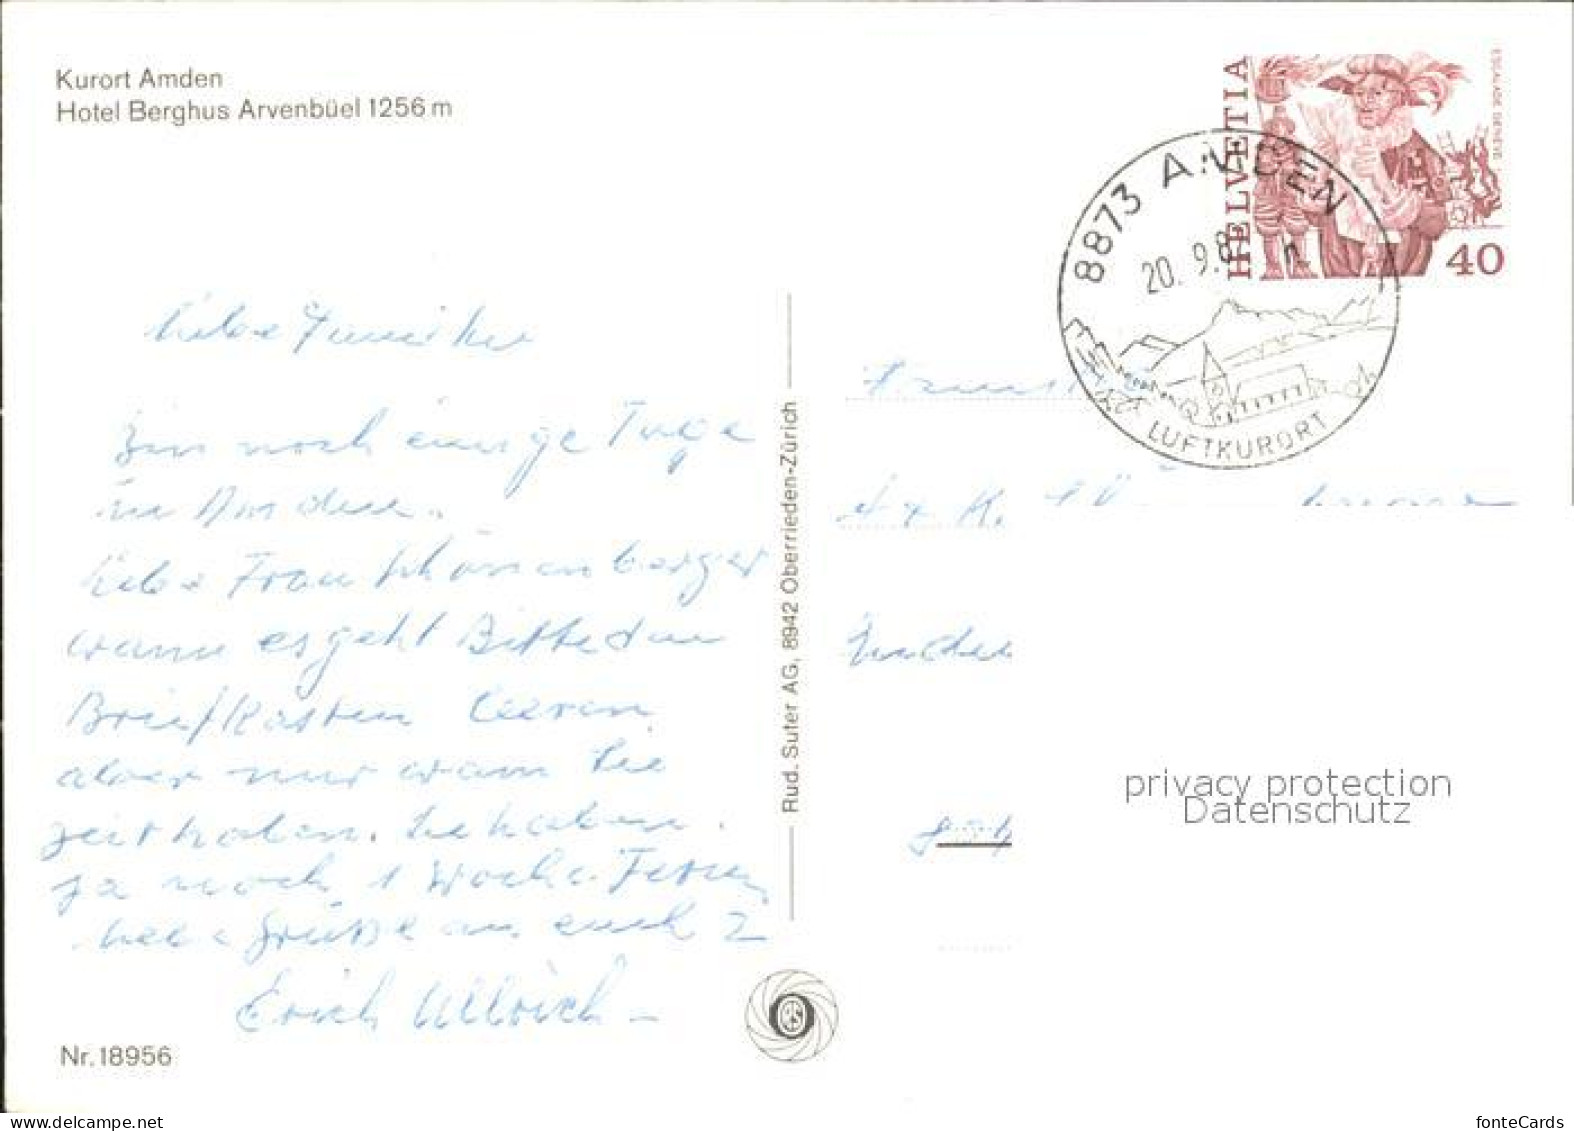 Kurort Amden
Hotel Berghus Arvenbüel 1256 m
HELVETIA
ESCALADE GENÈVE
40
8873 AMDEN
20. 9.8
LUFTKURORT
liebe
Bin noch einige Tage
in Amden.
liebe Frau Schönenberger
wann es geht Bitte den
Briefkasten leeren
aber nur wann Sie
zeit haben. Sie haben
ja noch 1 Woche Ferien
liebe Grüße an euch 2
Erich Ullrich
Nr. 18956
Rud. Suter AG, 8942 Oberrieden-Zürich
privacy protection
Datenschutz
www.delcampe.net
fonteCards